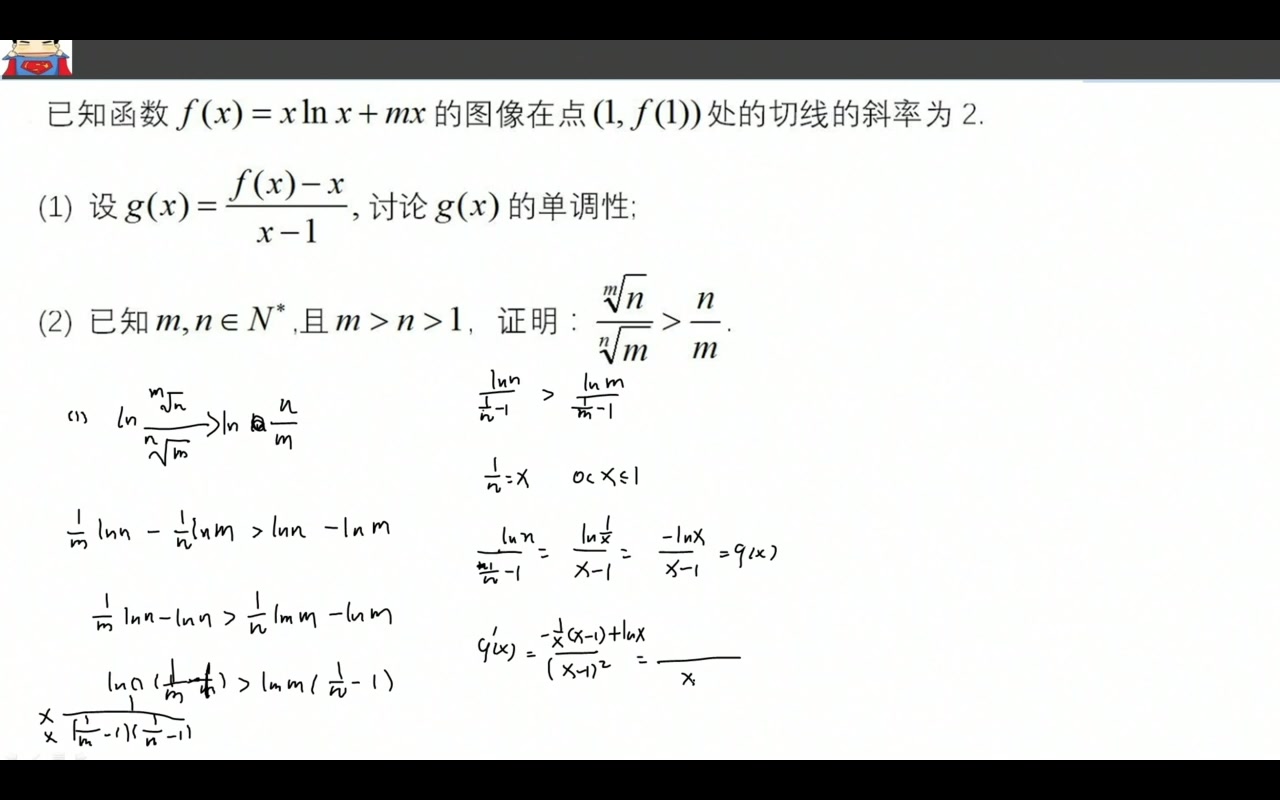 已知函数 f(x) = x ln x + mx 的图像在点 (1, f(1)) 处的切线的斜率为 2.
(1) 设 g(x) = \frac{f(x)-x}{x-1}, 讨论 g(x) 的单调性;
(2) 已知 m, n ∈ N^*, 且 m > n > 1, 证明: \frac{\sqrt[m]{n}}{\sqrt[n]{m}} > \frac{n}{m}.
(1) ln \frac{\sqrt[m]{n}}{\sqrt[n]{m}} > ln \frac{n}{m}
\frac{1}{m} ln n - \frac{1}{n} ln m > ln n - ln m
\frac{1}{m} ln n - ln n > \frac{1}{n} ln m - ln m
ln n ( \frac{1}{m} - 1 ) > ln m ( \frac{1}{n} - 1 )
x \frac{1}{(\frac{1}{m}-1)(\frac{1}{n}-1)}
x
\frac{ln n}{\frac{1}{n}-1} > \frac{ln m}{\frac{1}{m}-1}
\frac{1}{n} = x 0 < x < 1
\frac{ln n}{\frac{1}{n}-1} = \frac{ln \frac{1}{x}}{x-1} = \frac{-ln x}{x-1} = g(x)
g'(x) = \frac{-\frac{1}{x}(x-1)+ln x}{(x-1)^2} = \frac{}{x}